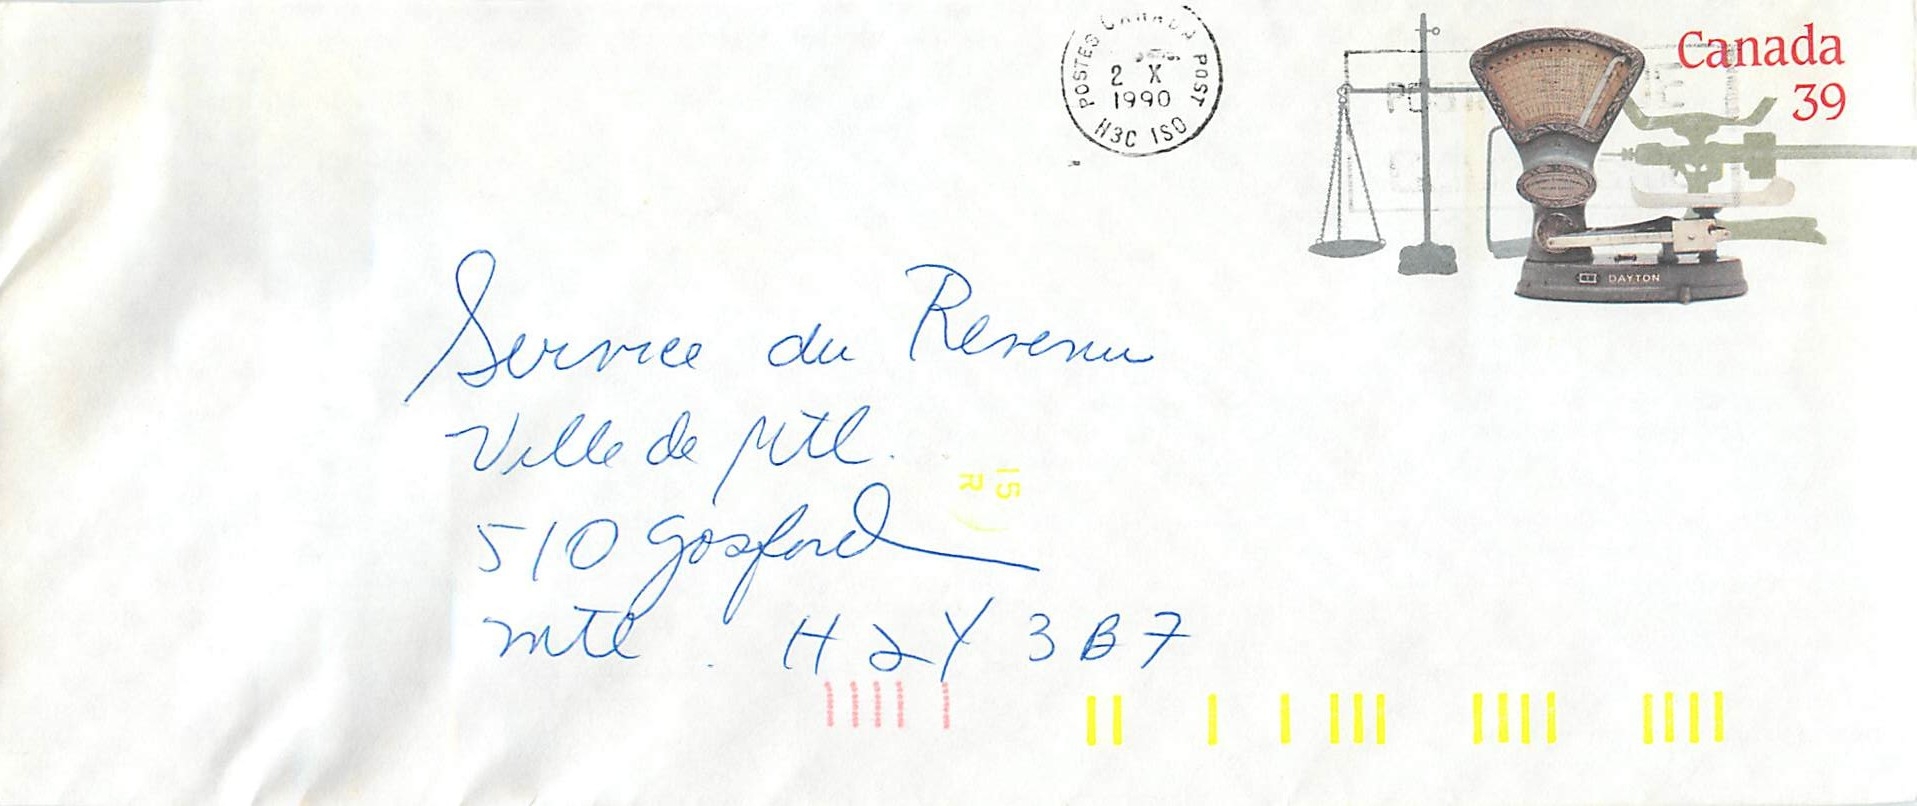 POSTES CANADA POST
2 X
1990
H3C 1S0
Canada
39
DAYTON
Service du Revenu
Ville de Mtl.
15
R
510 Gosford
Mtl. H2Y 3B7